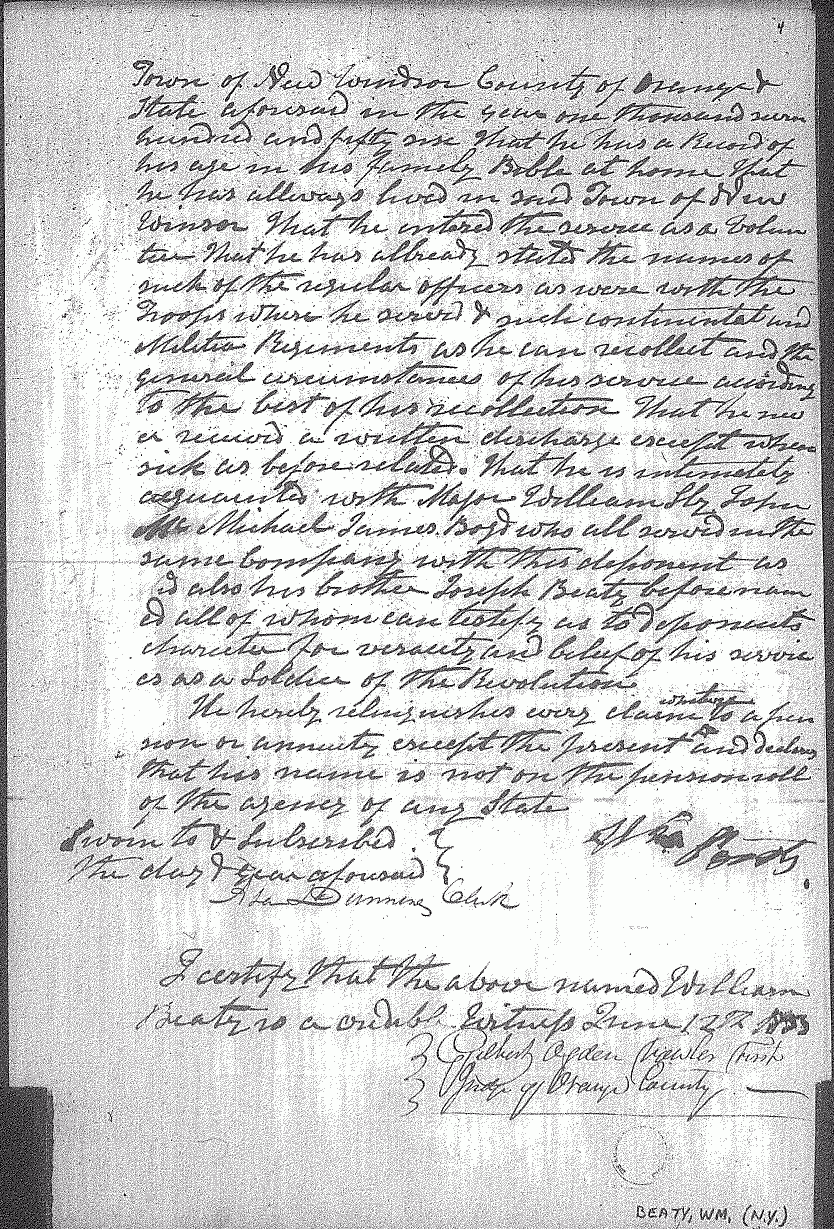 4
Town of New Windsor County of Orange &
State aforesaid in the year one thousand seven
hundred and fifty six that he has a Record of
his age in his family Bible at home That
he has allways lived in said Town of New
Winsor That he intered the service as a Volun
teer That he has allready stated the names of
such of the regular officers as were with the
Troops where he served & such continental and
Militia Regiments as he can recollect and the
general circumstances of his service according
to the best of his recollection That he nev
er received a written discharge except when
sick as before related. That he is intimately
acquainted with Major William Sly John
Mc Michael James Boyd who all served in the
same Company with this deponent as
is also his brother Joseph Beaty before nam
ed all of whom can testify as to deponents
character for veracity and belief of his servic
es as a Soldier of the Revolution
whatever
He hereby relinquishes every claim to a pen
sion or annuity except the present and declares
that his name is not on the pension roll
of the agency of any State
Sworn to & Subscribed
the day & year aforesaid
Wm Beaty
Asa Dunning Clerk
I certify that the above named William
Beaty is a credible Witness June 12th 1833
Gilbert Ogden Fowler First
Judge of Orange County
BEATY, WM, (N.Y.)